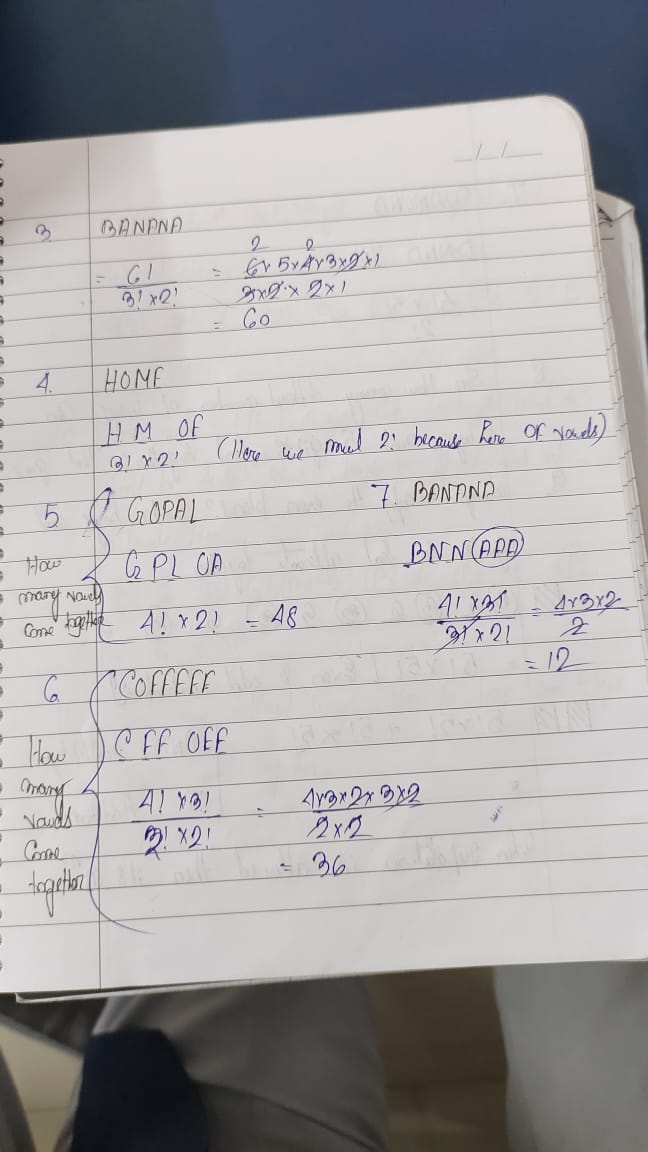 3. BANANA
= 6! / 3! × 2! = 6×5×4×3×2×1 / 3×2×2×1
= 60
4. HOME
H M OE
3! × 2! (Here we mul 2! because here OE vowels)
5 GOPAL
How many vowels come together
G PL OA
4! × 2! = 48
7. BANANA
BNN (AAA)
4! × 3! / 3! × 2! = 4×3×2 / 2
= 12
6. COFFEE
How many vowels come together
C FF OEE
4! × 3! / 2! × 2! = 4×3×2×3×2 / 2×2
= 36